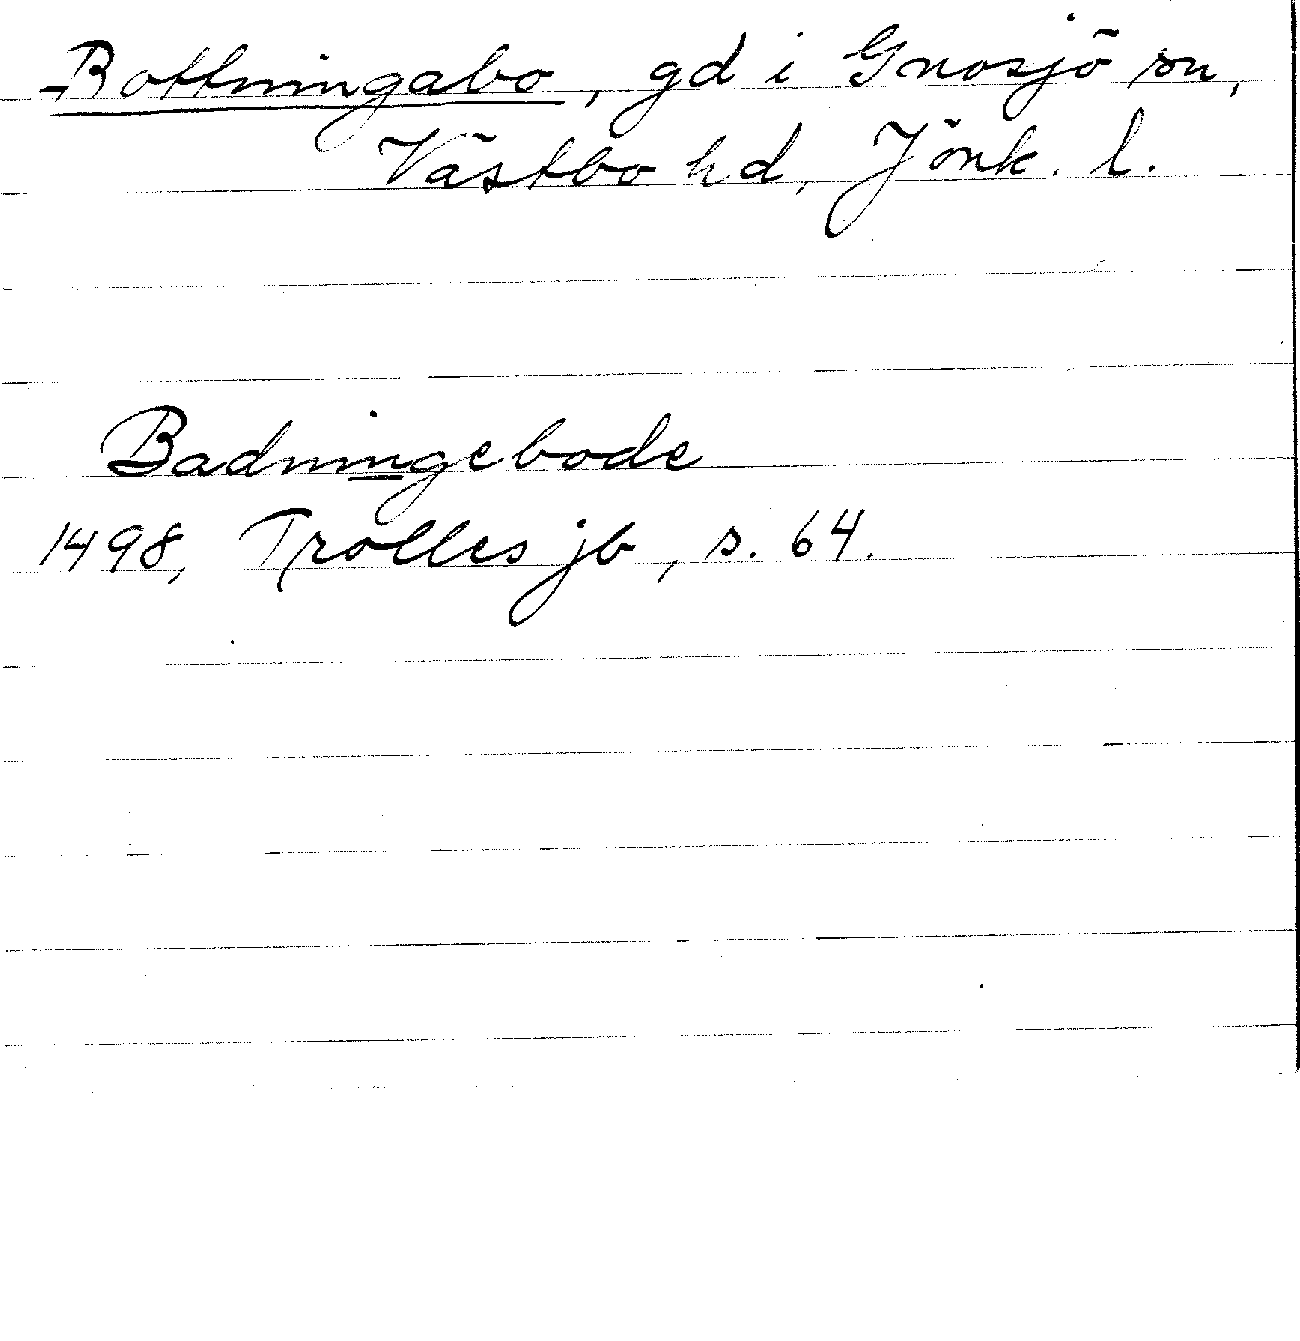 Bottningabo, gd i Gnosjö sn,
Västbo hd, Jönk. l.
Badningebode
1498, Trolles jb, s. 64.